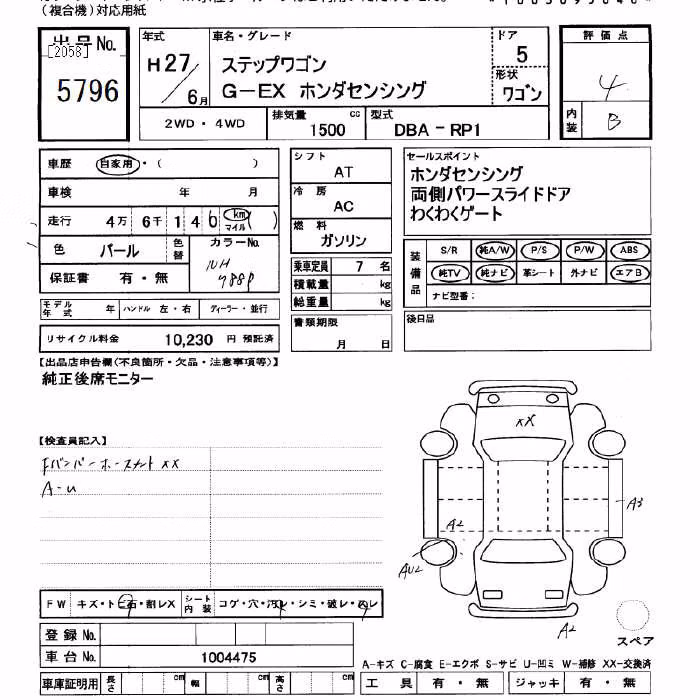 (複合機)対応用紙
出品No.
[2058]
5796
年式
H27/6月
車名・グレード
ステップワゴン
G-EX ホンダセンシング
ドア
5
形状
ワゴン
評価点
4
内装
B
2WD・4WD
排気量
1500 cc
型式
DBA-RP1
車歴 自家用・( )
車検 年 月
走行 4万 6千 1 4 0 km マイル ( )
色 パール 色替 カラーNo.
NH
788P
保証書 有・無
モデル年式 年 ハンドル 左・右 ディーラー・並行
リサイクル料金 10,230 円 預託済
シフト
AT
冷房
AC
燃料
ガソリン
乗車定員 7 名
積載量 kg
総重量 kg
書類期限
月 日
セールスポイント
ホンダセンシング
両側パワースライドドア
わくわくゲート
装備品
S/R 純A/W P/S P/W ABS
純TV 純ナビ 革シート 外ナビ エアB
ナビ型番:
後日品
【出品店申告欄(不良箇所・欠品・注意事項等)】
純正後席モニター
【検査員記入】
Fバンパーホースメント XX
A-U
XX
A2
A3
AU2
A2
スペア
FW キズ・トビ石・割レX シート内装 コゲ・穴・汚レ・シミ・破レ・スレ
登録No.
車台No. 1004475
車庫証明用 長さ cm 幅 cm 高さ cm
A-キズ C-腐食 E-エクボ S-サビ U-凹ミ W-補修 XX-交換済
工具 有・無 ジャッキ 有・無